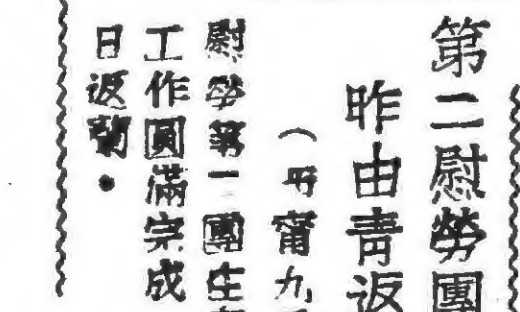 第二慰勞團
昨由青返
（西甯九
慰勞第一團在
工作圓滿完成
日返蘭。